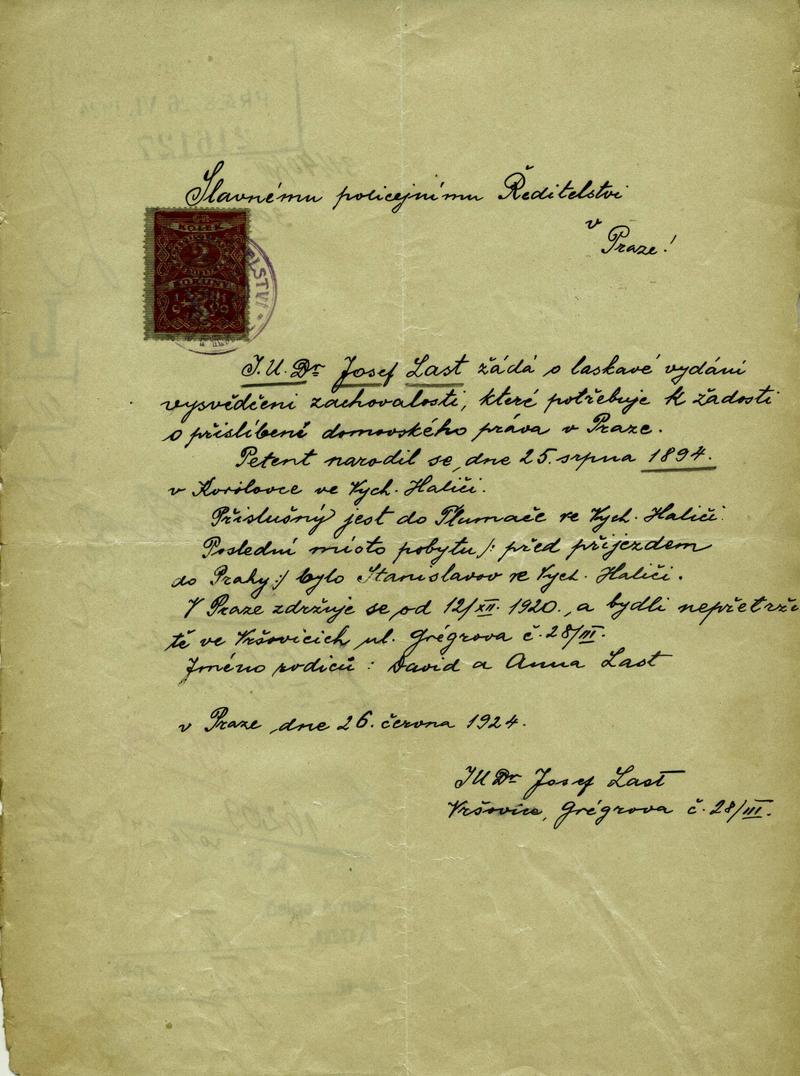 Slavnému policejnímu Ředitelství
v
Praze!
KOLEK
2
KORUNY
1919
J.U.Dr Josef Last žádá o laskavé vydání
vysvědčení zachovalosti, které potřebuje k žádosti
o přislíbení domovského práva v Praze.
Petent narodil se dne 25. srpna 1894.
v ve Vých. Haliči.
Příslušný jest do Tlumače ve Vých. Haliči.
Poslední místo pobytu /: před příjezdem
do Prahy :/ bylo Stanislavov ve Vých. Haliči.
V Praze zdržuje se od 12/XII. 1920., a bydlí nepřetrži
tě ve Vršovicích ul. Grégrova č. 28/III.
Jméno rodičů : David a Anna Last
v Praze dne 26. června 1924.
JUDr Josef Last
Vršovice, Grégrova č. 28/III.